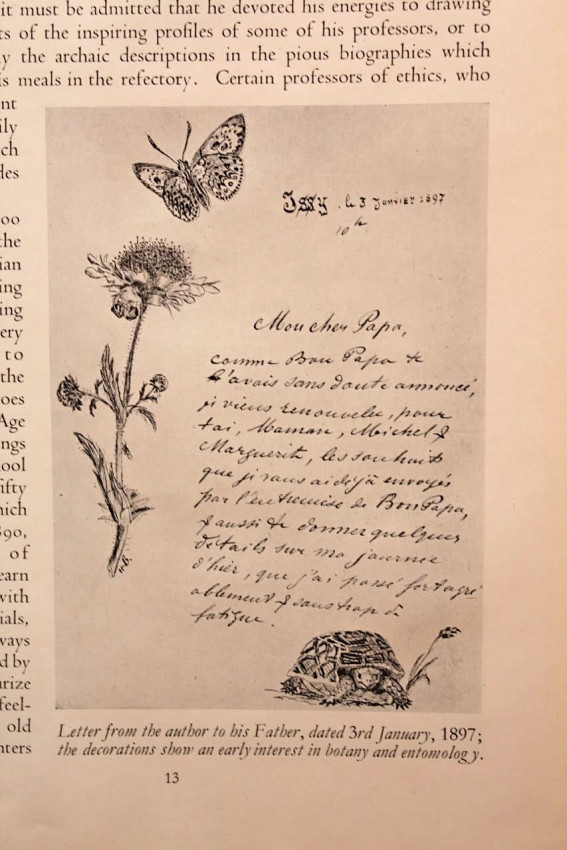 it must be admitted that he devoted his energies to drawing
ts of the inspiring profiles of some of his professors, or to
y the archaic descriptions in the pious biographies which
is meals in the refectory. Certain professors of ethics, who
nt
ily
ch
des
oo
the
ian
ing
ing
ery
to
the
oes
Age
ngs
ool
ifty
hich
90,
of
earn
with
ials,
ways
d by
arize
feel-
old
nters
Issy. le 3 Janvier 1897
10h
Mon cher Papa,
comme Bon Papa te
l'avais sans doute annoncé,
je viens renouveler, pour
toi, Maman, Michel &
Marguerite, les souhaits
que je vous ai déjà envoyés
par l'entremise de Bon Papa,
& aussi te donner quelques
détails sur ma journée
d'hier, que j'ai passé fort agré
ablement & sans trop de
fatigue.
Letter from the author to his Father, dated 3rd January, 1897;
the decorations show an early interest in botany and entomology.
13